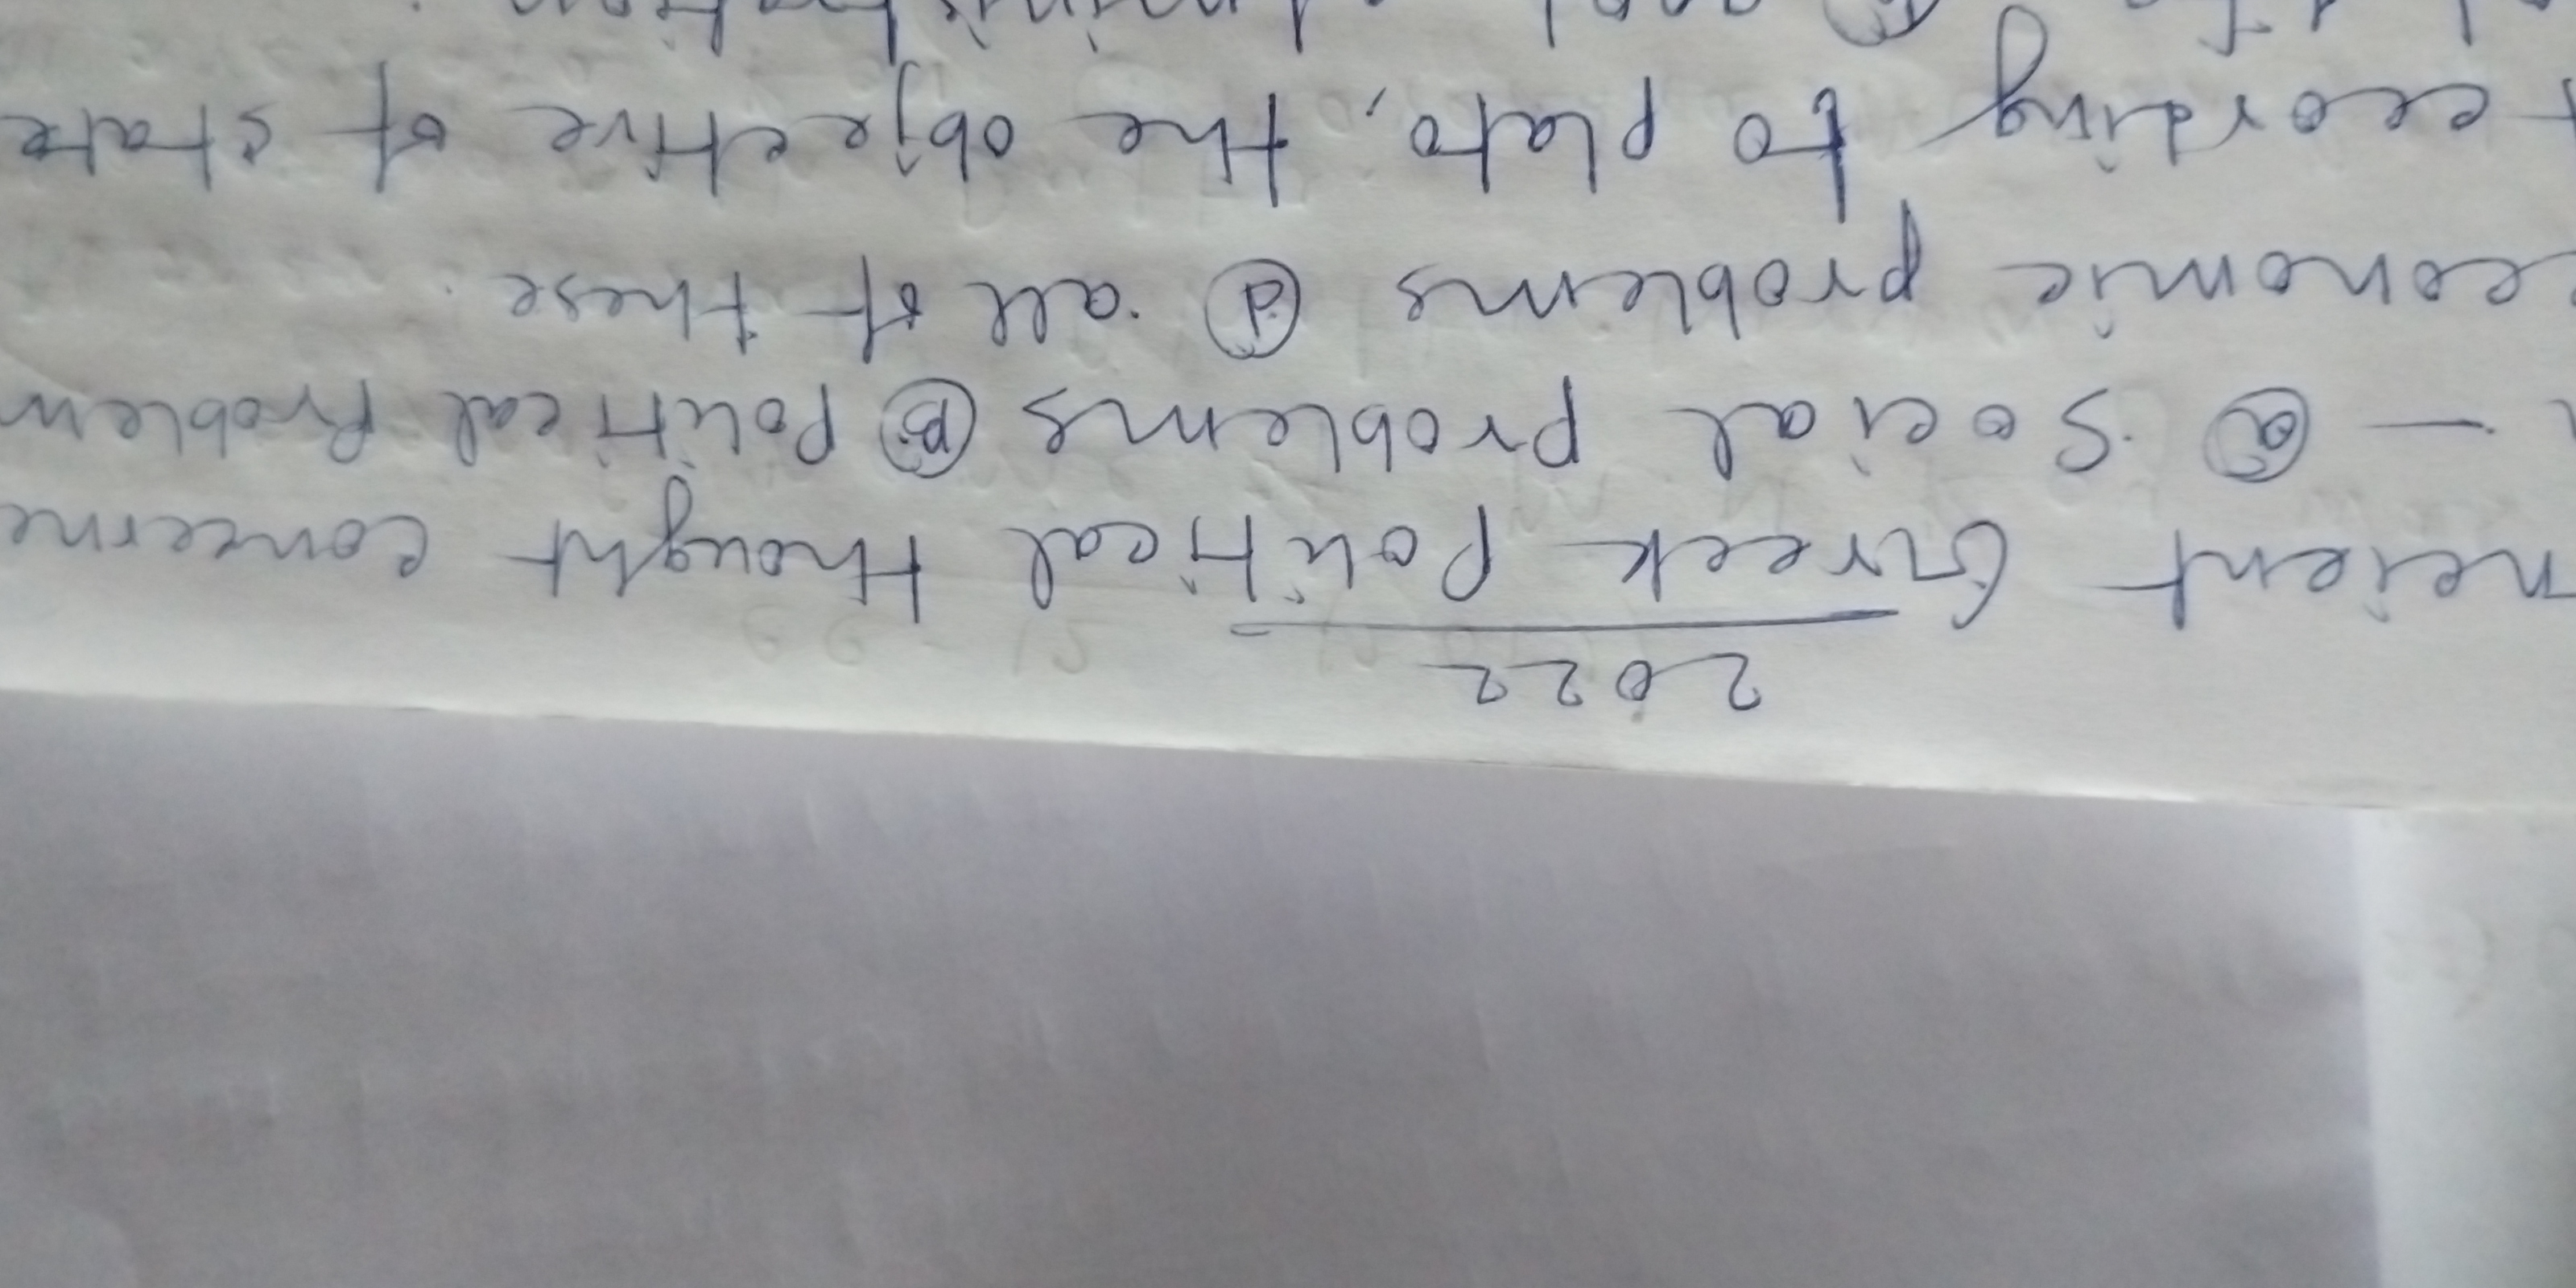 2022
ncient Greek Political thought concerne
- ⓐ Social problems ⓑ Political Problem
economic problems ⓓ all of these.
ccording to plato, the objective of state